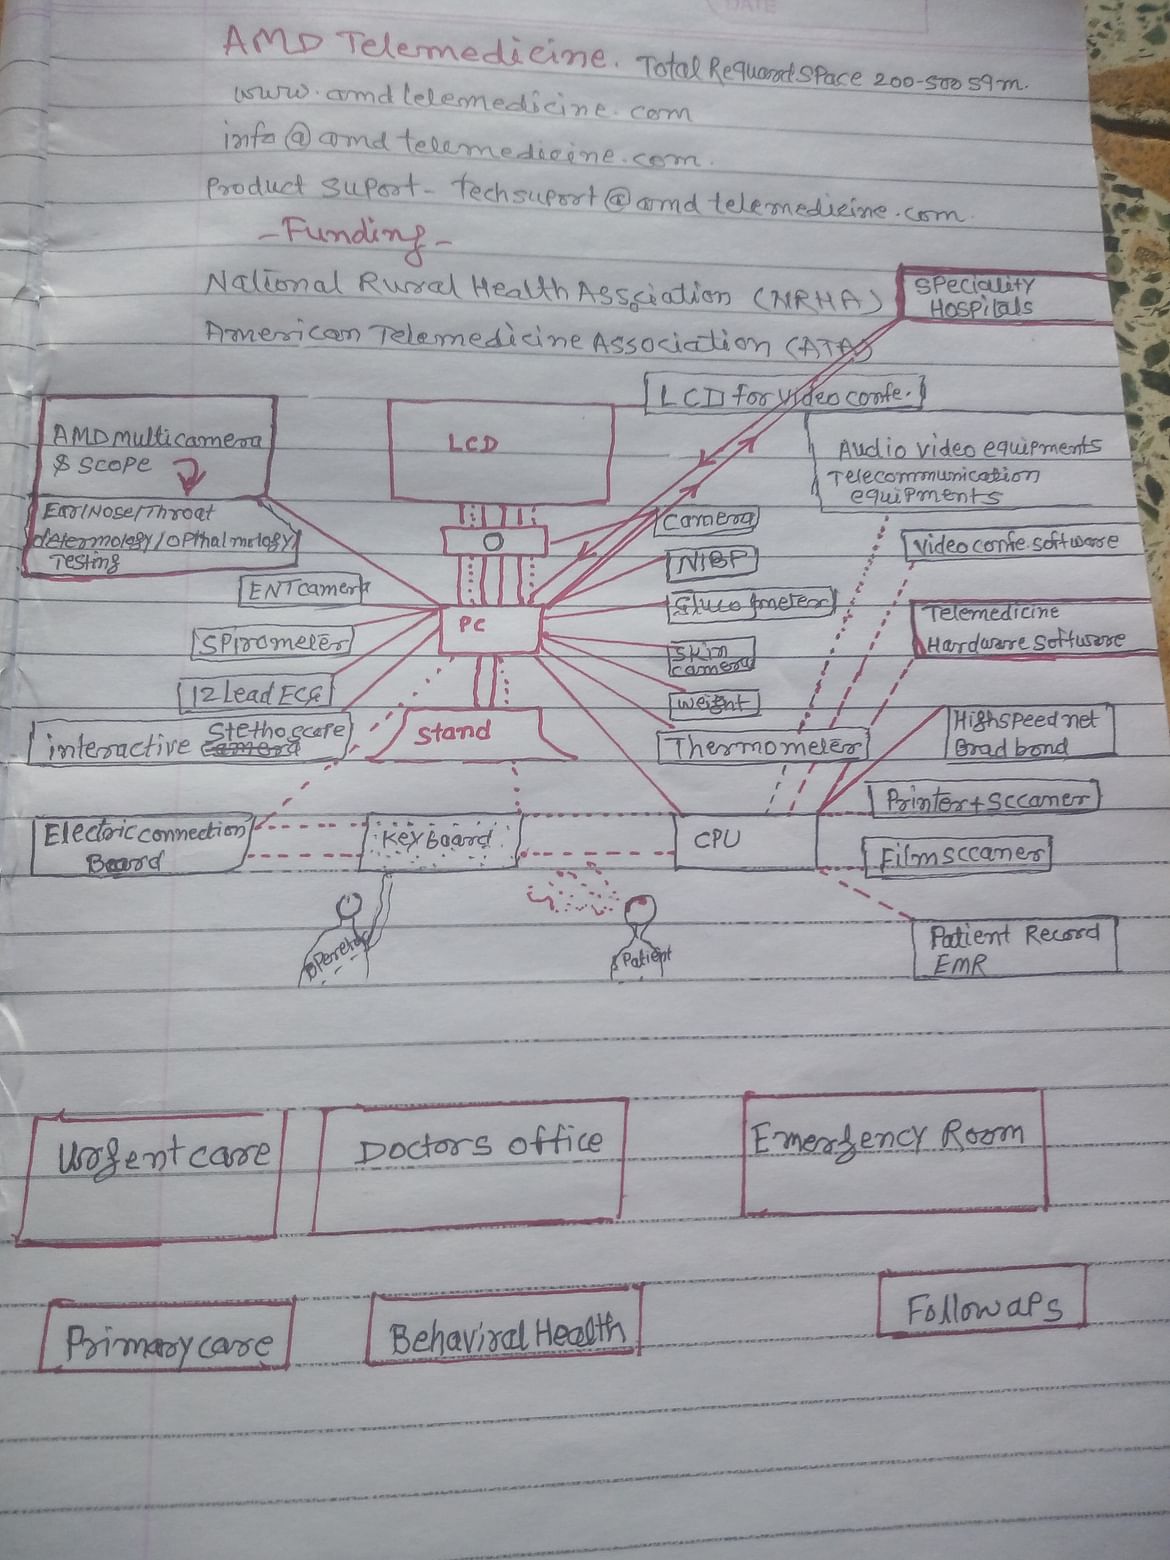 DATE
AMD Telemedicine. Total Requard space 200-500 sqm.
www.amdtelemedicine.com
info@amdtelemedicine.com.
Product suport - techsuport@amdtelemedicine.com
- Funding -
National Rural Health Association (NRHA)
American Telemedicine Association (ATA)
Speciality
Hospitals
LCD for video confe.
AMD multicamera
& scope
Ear/Nose/Throat
determology/opthalmology
Testing
LCD
Audio video equipments
Telecommunication
equipments
camera
NIBP
Gluco meter
skin
camera
weight
Thermometer
Video confe software
Telemedicine
Hardware software
High speed net
Brad bond
Printer + sccaner
Film sccaner
ENT camera
Spirometer
12 Lead ECG
interactive Stethoscope
PC
Stand
Electric connection
Board
Key board
CPU
Patient Record
EMR
Operetor
Patient
Urgent care
Doctors office
Emergency Room
Primary care
Behaviral Health
Followaps